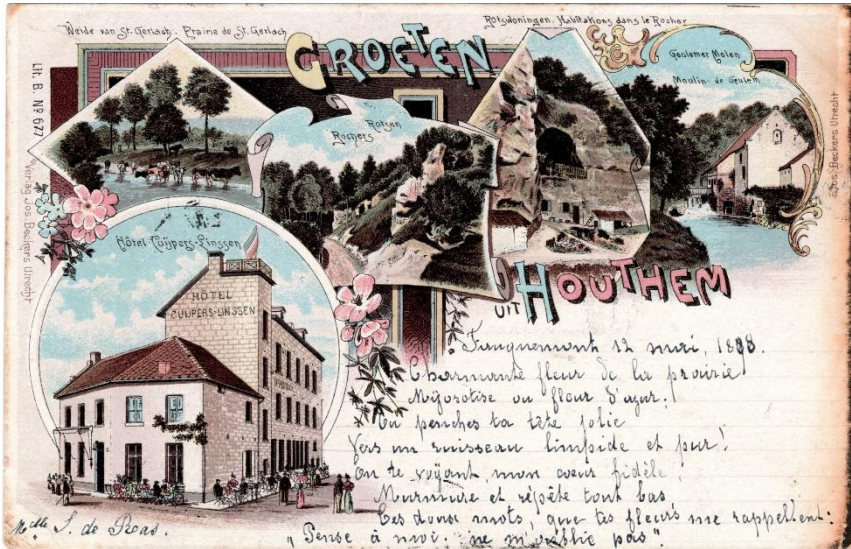 Weide van St. Gerlach. Prairie de St. Gerlach
GROETEN
Rotswoningen. Habitations dans le Rocher
Geulemer Molen
Moulin de Geulem
Rotsen
Rochers
Lit. B. Nº 677
Verlag Jos. Beckers Utrecht
Jos. Beckers Utrecht
Hôtel Cuijpers-Linssen
HÔTEL
CUIJPERS-LINSSEN
UIT HOUTHEM
Fauquemont 12 mai, 1898.
Charmante fleur de la prairie
Myosotise ou fleur d'azur,
Tu penches ta tête jolie
Vers un ruisseau limpide et pur!
En te voyant, mon cœur fidèle,
Murmure et répète tout bas,
Ces doux mots, que tes fleurs me rappellent:
"Pense à moi: ne m'oublie pas".
Melle S. de